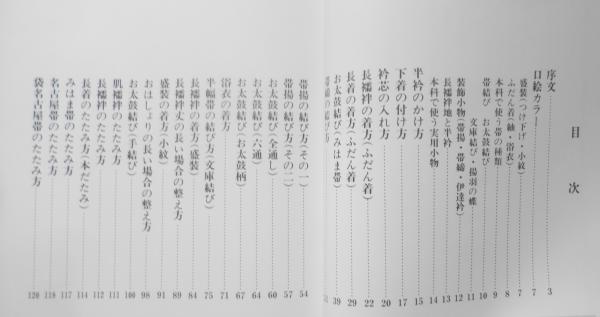 目次
序文 3
口絵カラー 7
盛装(つけ下げ・小紋) 7
ふだん着(紬・浴衣) 8
本科で使う帯の種類 9
帯結び お太鼓結び 10
文庫結び・揚羽の蝶 11
装飾小物(帯揚・帯締・伊達衿) 12
長襦袢地と半衿 13
本科で使う実用小物 14
半衿のかけ方 15
下着の付け方 17
衿芯の入れ方 20
長襦袢の着方(ふだん着) 22
長着の着方(ふだん着) 29
お太鼓結び(みはま帯) 39
帯揚の結び方(その一) 54
帯揚の結び方(その二) 57
お太鼓結び(全通し) 60
お太鼓結び(六通) 64
お太鼓結び(お太鼓柄) 67
浴衣の着方 71
半幅帯の結び方(文庫結び) 75
長襦袢の着方(盛装) 84
長襦袢丈の長い場合の整え方 89
盛装の着方(小紋) 91
おはしょりの長い場合の整え方 98
お太鼓結び(手結び) 100
肌襦袢のたたみ方 111
長襦袢のたたみ方 112
長着のたたみ方(本だたみ) 114
みはま帯のたたみ方 117
名古屋帯のたたみ方 118
袋名古屋帯のたたみ方 120